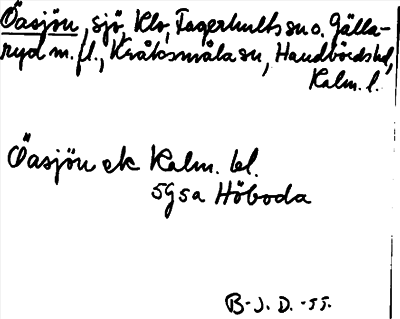 Öasjön, sjö, Klo, Fagerhults sn o. Gälla-
ryd m. fl., Kråksmåla sn, Handbörds hd,
Kalm. l.
Öasjön ek Kalm. bl.
5g5a Höboda
B-J. D. -55.